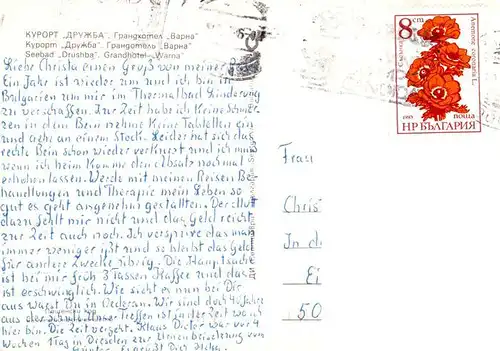 КУРОРТ „ДРУЖБА". Грандхотел „Варна"
Курорт „Дружба". Грандотель „Варна"
Seebad „Drushba". Grandhotel „Warna"
Liebe Christa einen Gruß von meiner
Ein Jahr ist wieder um und ich bin in
Bulgarien um mir im Thermalbad Linderung
zu verschaffen. Zur Zeit habe ich keine Schmer-
zen in dem Bein nehme keine Tabletten ein
und gehe an einem Stock. Leider hat sich das
rechte Bein schon wieder verkürzt und ich muß
wenn ich heim komme den Absatz nochmal
erhöhen lassen. Werde mit meinen Reisen Be-
handlungen und Therapie mein Leben so
gut es geht angenehm gestalten. Der Mut
dazu fehlt mir nicht und das Geld reicht
zur Zeit auch noch. Ich verspüre das man
immer weniger ißt und so bleibt das Geld
für andere Zwecke übrig. Die Hauptsache
ist bei mir früh 3 Tassen Kaffee und das
ist erschwinglich. Wie sieht es nun bei Dir
aus warst Du in Oederan. Wir sind doch 40 Jahre
aus der Schule. Unser Treffen ist in der Zeit wo ich
hier bin. Die Zeit vergeht. Klaus Dieter war vor 4
Wochen 1 Tag in Dresden zur Unterbesetzung von
Günter. Es grüßt Dich
8 ст
Съсънка
Anemone coronaria L.
1985
поща
НР БЪЛГАРИЯ
Frau
Chris
In d
Ei
50